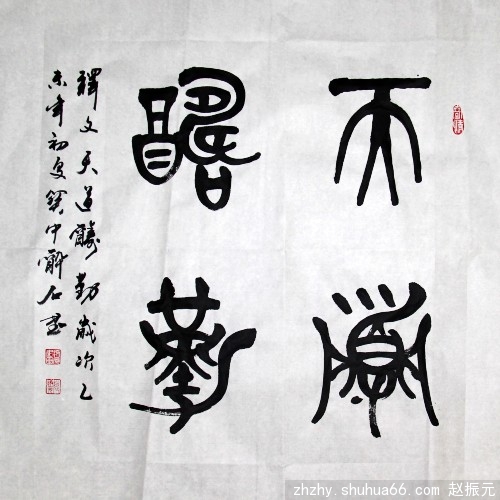 天道
酬勤
釋文天道酬勤歲次乙
未年初夏中石書
zhzhy.shuhua66.com 赵振元